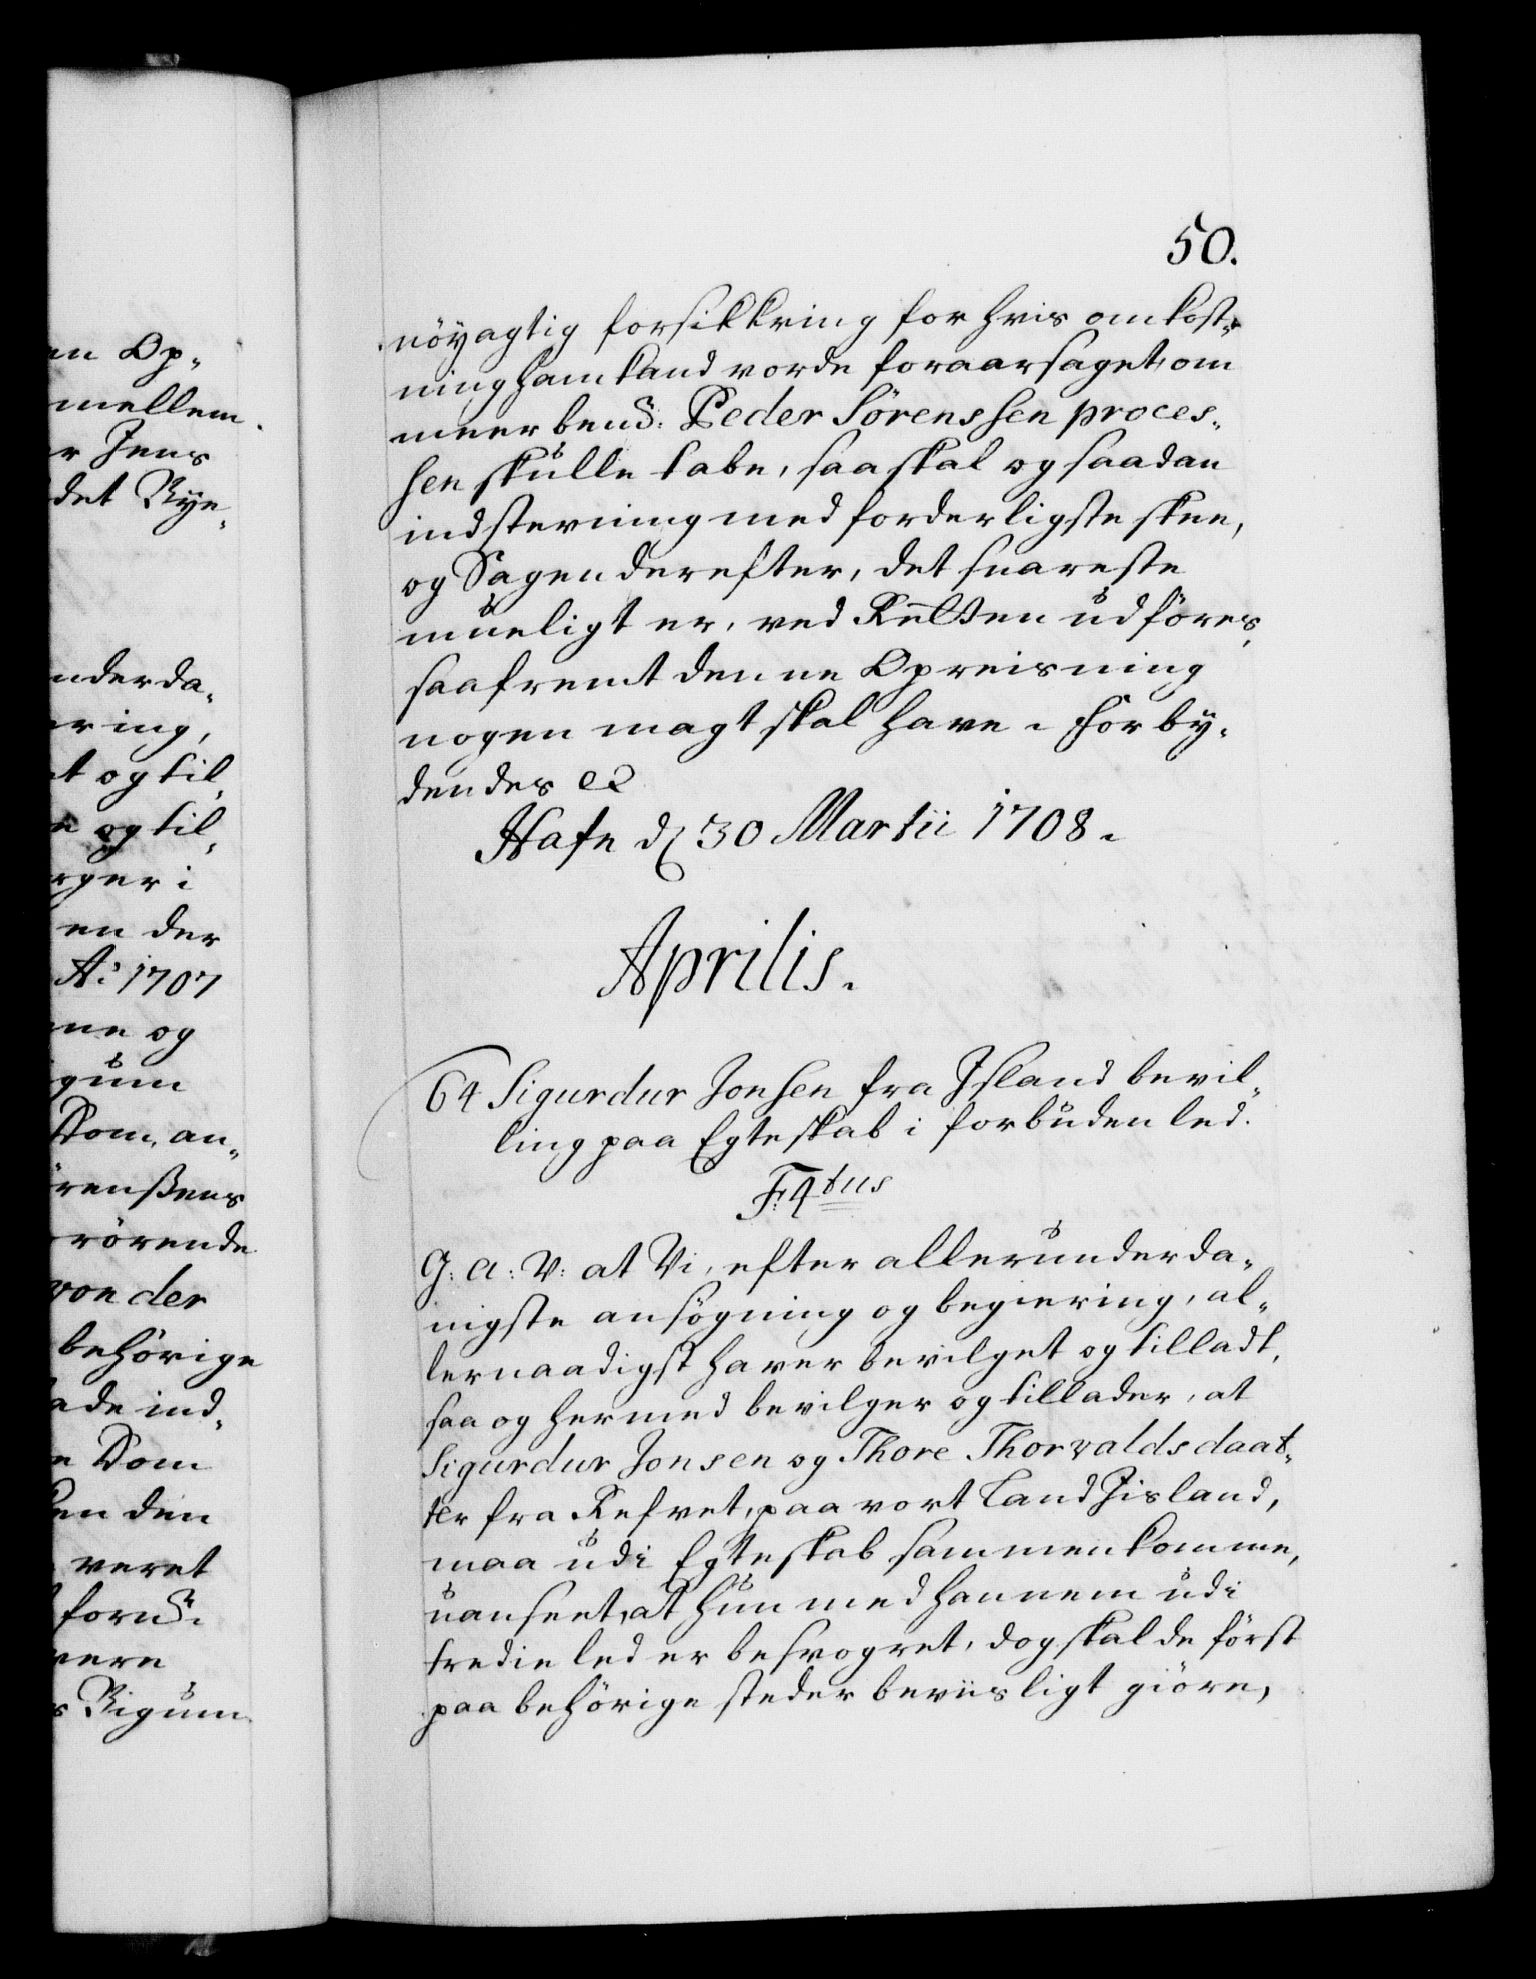 50.
nöÿagtig forsikkring for hvis omkost-
ning ham kand vorde foraarsaget, om
meer bend: Peder Sörenssen proces-
sen skulle tabe, saa skal og saadan
indstevning med forderligste skee,
og Sagen derefter, det snareste
mueligt er, ved Retten udföres,
saafremt denne Opreisning
nogen magt skal have. Forbÿ-
dendes etc
Hafn d 30 Martii 1708.
Aprilis.
64 Sigurdur Jonsen fra Jsland bevil-
ling paa Egteskab i forbuden led.
F. 4tus
G: A: V: at Vi, efter allerunderda-
nigste ansögning og begiering, al-
lernaadigst haver bevilget og tilladt,
saa og hermed bevilger og tillader, at
Sigurdur Jonsen og Thore Thorvaldsdaat-
ter fra Refvet, paa vort Land Jisland,
maa udi Egteskab sammenkomme,
uanseet, at hun med hannem udi
tredie led er besvogret, dog skal de först
paa behörige steder beviisligt giöre,
en Op-
mellem
r Jens
det Rÿe-
nderda-
ering,
t og til-
e og til-
rger i
en der
Ao 1707
ne og
gum
Dom, an-
renßens
rörende
von der
behörige
ade ind-
n Dom
en den
veret
fornd:
vere
s Rigum